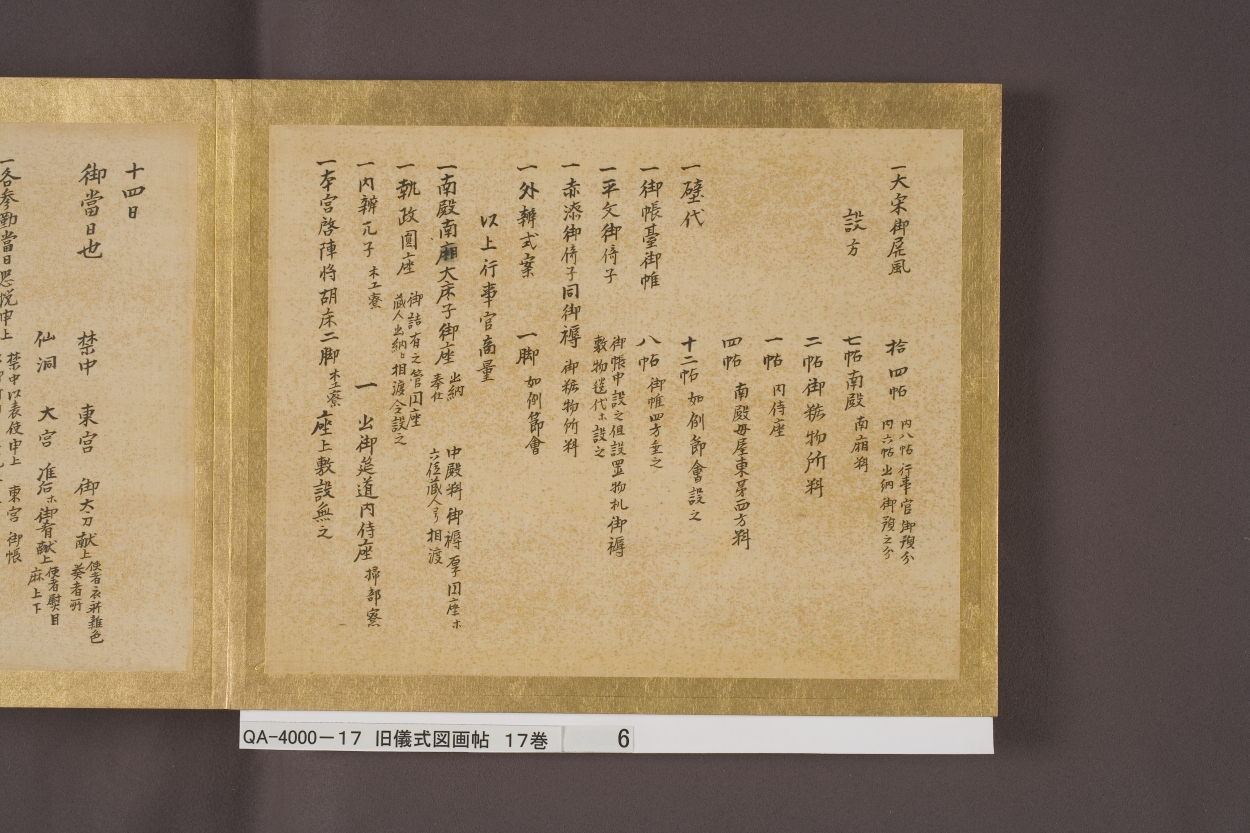 一大宋御屏風 拾四帖 内八帖行事官御預分
内六帖出納御預之分
設方 七帖南殿南廂料
二帖御粧物所料
一帖内侍座
四帖南殿母屋東第四方料
一壁代 十二帖如例節會設之
一御帳臺御帷 八帖御帷四方垂之
一平文御倚子 御帳中設之但設置物札御褥
敷物毯代ホ設之
一赤漆御倚子同御褥 御粧物所料
一外辨式案 一脚如例節會
以上行事官商量
一南殿南廂大床子御座 出納
奉仕 中殿料御褥厚円座ホ
六位蔵人ヨリ相渡
一執政圓座 御詰有之管円座
蔵人出納ヘ相渡令設之
一内辨兀子 木工寮 一出御筵道内侍座 掃部寮
一本宮啓陣将胡床二脚 木工寮 座上敷設無之
十四日
御當日也 禁中 東宮 御太刀献上 使者衣冠雜色
葵者所
仙洞 大宮 准后ホ御肴献上 使者熨目
麻上下
一各参勤當日恐悦申上 禁中以表使申上 東宮御帳
QA-4000-17 旧儀式図画帖 17巻 6